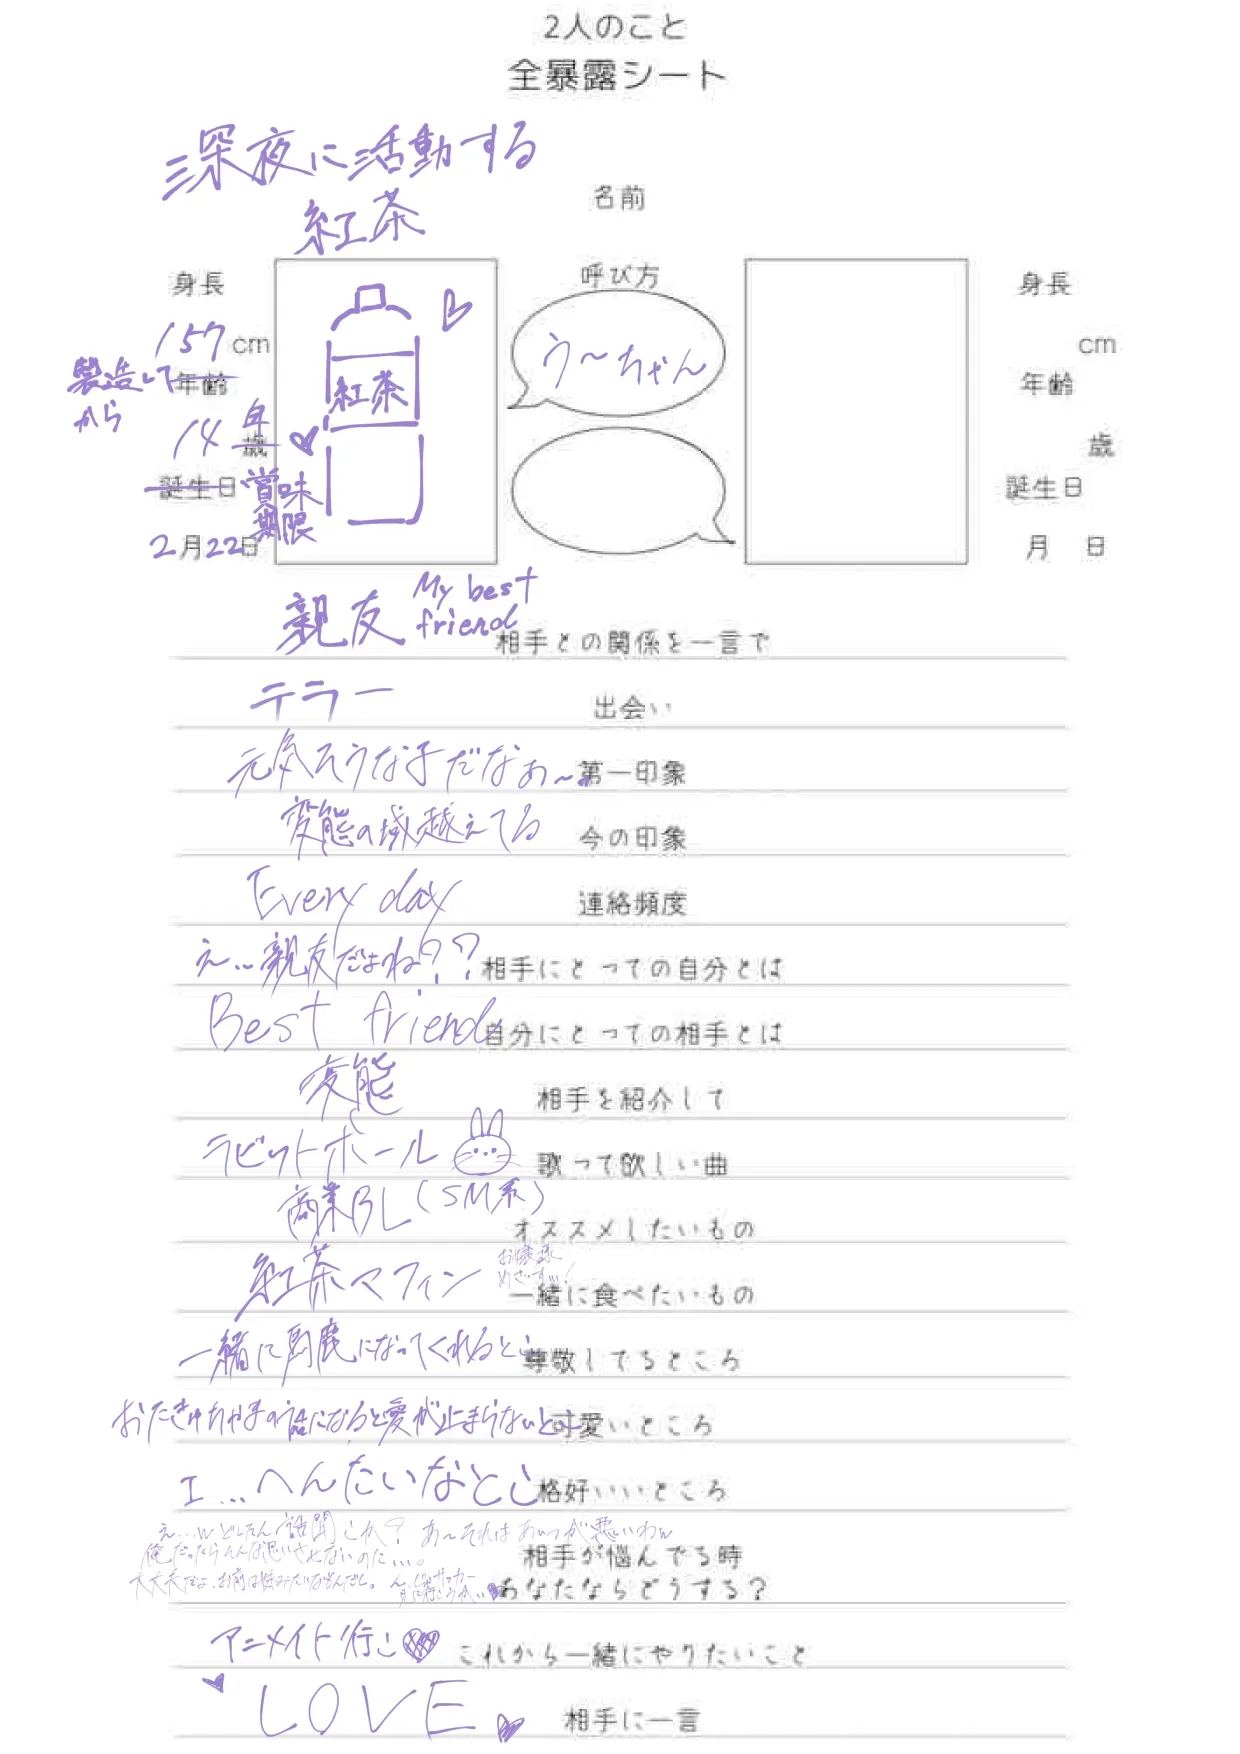 2人のこと
全暴露シート
深夜に活動する
紅茶
名前
身長
157cm
製造してから
年齢
14年
歳
誕生日
賞味期限
2月22日
紅茶
呼び方
う〜ちゃん
身長
cm
年齢
歳
誕生日
月 日
親友 My best friend
相手との関係を一言で
テラー
出会い
元気そうな子だなぁ〜。
第一印象
変態の域越えてる
今の印象
Every day
連絡頻度
え…親友だよね??
相手にとっての自分とは
Best friend
自分にとっての相手とは
変態
相手を紹介して
ラビットホール
歌って欲しい曲
商業BL(SM系)
オススメしたいもの
紅茶マフィン
お嬢様
めざすぃ!
一緒に食べたいもの
一緒に馬鹿になってくれるとこ
尊敬してるところ
おたきゅちゃまの話になると愛が止まらないとこ
可愛いところ
I…へんたいなとこ
格好いいところ
え…wどしたん話聞こか? あ〜それはあいつが悪いわw
俺だったらそんな思いさせないのに…。
大丈夫だよ、お前は
ん、じゃサッカー
見に行こうかい
相手が悩んでる時
あなたならどうする?
アニメイト行こ
これから一緒にやりたいこと
LOVE
相手に一言